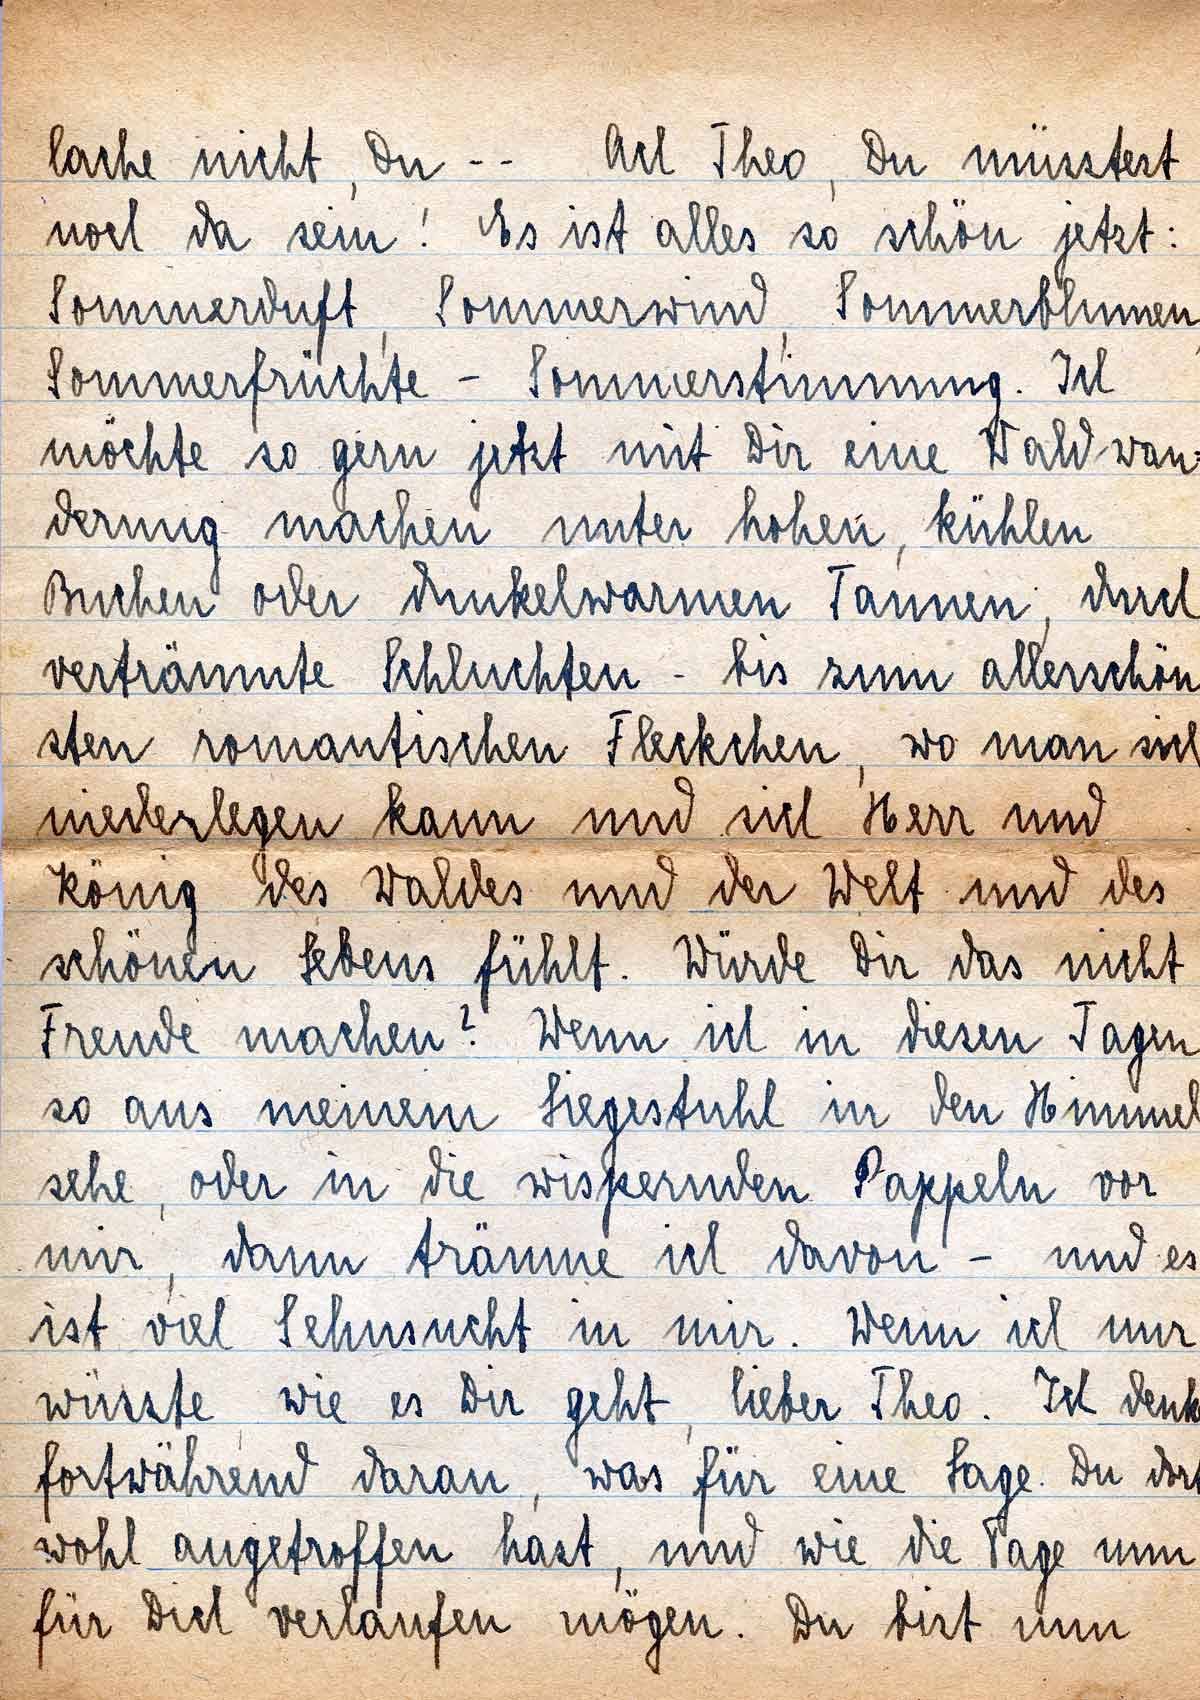 lache nicht, Du -- Ach Theo, Du müsstest
noch da sein! Es ist alles so schön jetzt:
Sommerduft, Sommerwind, Sommerblumen,
Sommerfrüchte - Sommerstimmung. Ich
möchte so gern jetzt mit Dir eine Waldwan=
derung machen unter hohen, kühlen
Buchen oder dunkelwarmen Tannen, durch
verträumte Schluchten - bis zum allerschön
sten romantischen Fleckchen, wo man sich
niederlegen kann und sich Herr und
König des Waldes und der Welt und des
schönen Lebens fühlt. Würde Dir das nicht
Freude machen? Wenn ich in diesen Tagen
so aus meinem Liegestuhl in den Himmel
sehe, oder in die wispernden Pappeln vor
mir, dann träume ich davon - und es
ist viel Sehnsucht in mir. Wenn ich nur
wüsste, wie es Dir geht, lieber Theo. Ich denk
fortwährend daran, was für eine Lage Du dort
wohl angetroffen hast, und wie die Tage nun
für Dich verlaufen mögen. Du bist nun